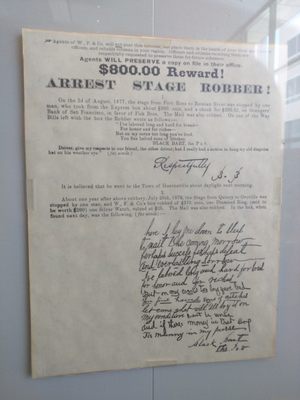 Agents of W., F. & Co. will not post this circular, but place them in the hands of your local and
officers, and reliable citizens in your region. Officers and
respectfully requested to preserve them for future reference.
Agents WILL PRESERVE a copy on file in their office.
$800.00 Reward!
ARREST STAGE ROBBER!
On the 3d of August, 1877, the stage from Fort Ross to Russian River was stopped by one
man, who took from the Express box about $300, coin, and a check for
Bank of San Francisco, in favor of Fisk Bros. The Mail was also robbed. On one of the Way
Bills left with the box the Robber wrote as follows:—
"I've labored long and hard for bread—
For honor and for riches—
But on my corns too long you've tred,
You fine haired sons of bitches.
BLACK BART, the P o 8.
Driver, give my respects to our friend, the other driver; but I really had a notion to hang my old disguise
hat on his weather eye."
Respectfully
B. B
It is believed that he went to the Town of Guerneville about daylight next morning.
About one year after above robbery, July 25th, 1878, the Stage from Quincy to Oroville was
stopped by one man, and W., F. & Co's box robbed of $379, coin, one Diamond Ring, (said to
be worth $200) one Silver Watch, valued at $25. The Mail was also robbed. In the box, when
found next day, was the following:
here I lay me down to sleep
to wait the coming morrow
perhaps success perhaps defeat
And everlasting sorrow
I've labored long and hard for bred
for honor and for riches
But on my corns too long
You fine haired sons of bitches
let come what will I'll try it on
My condition can't be worse
and if theres money in that Box
Tis munny in my purse
Black Bart
the Po 8